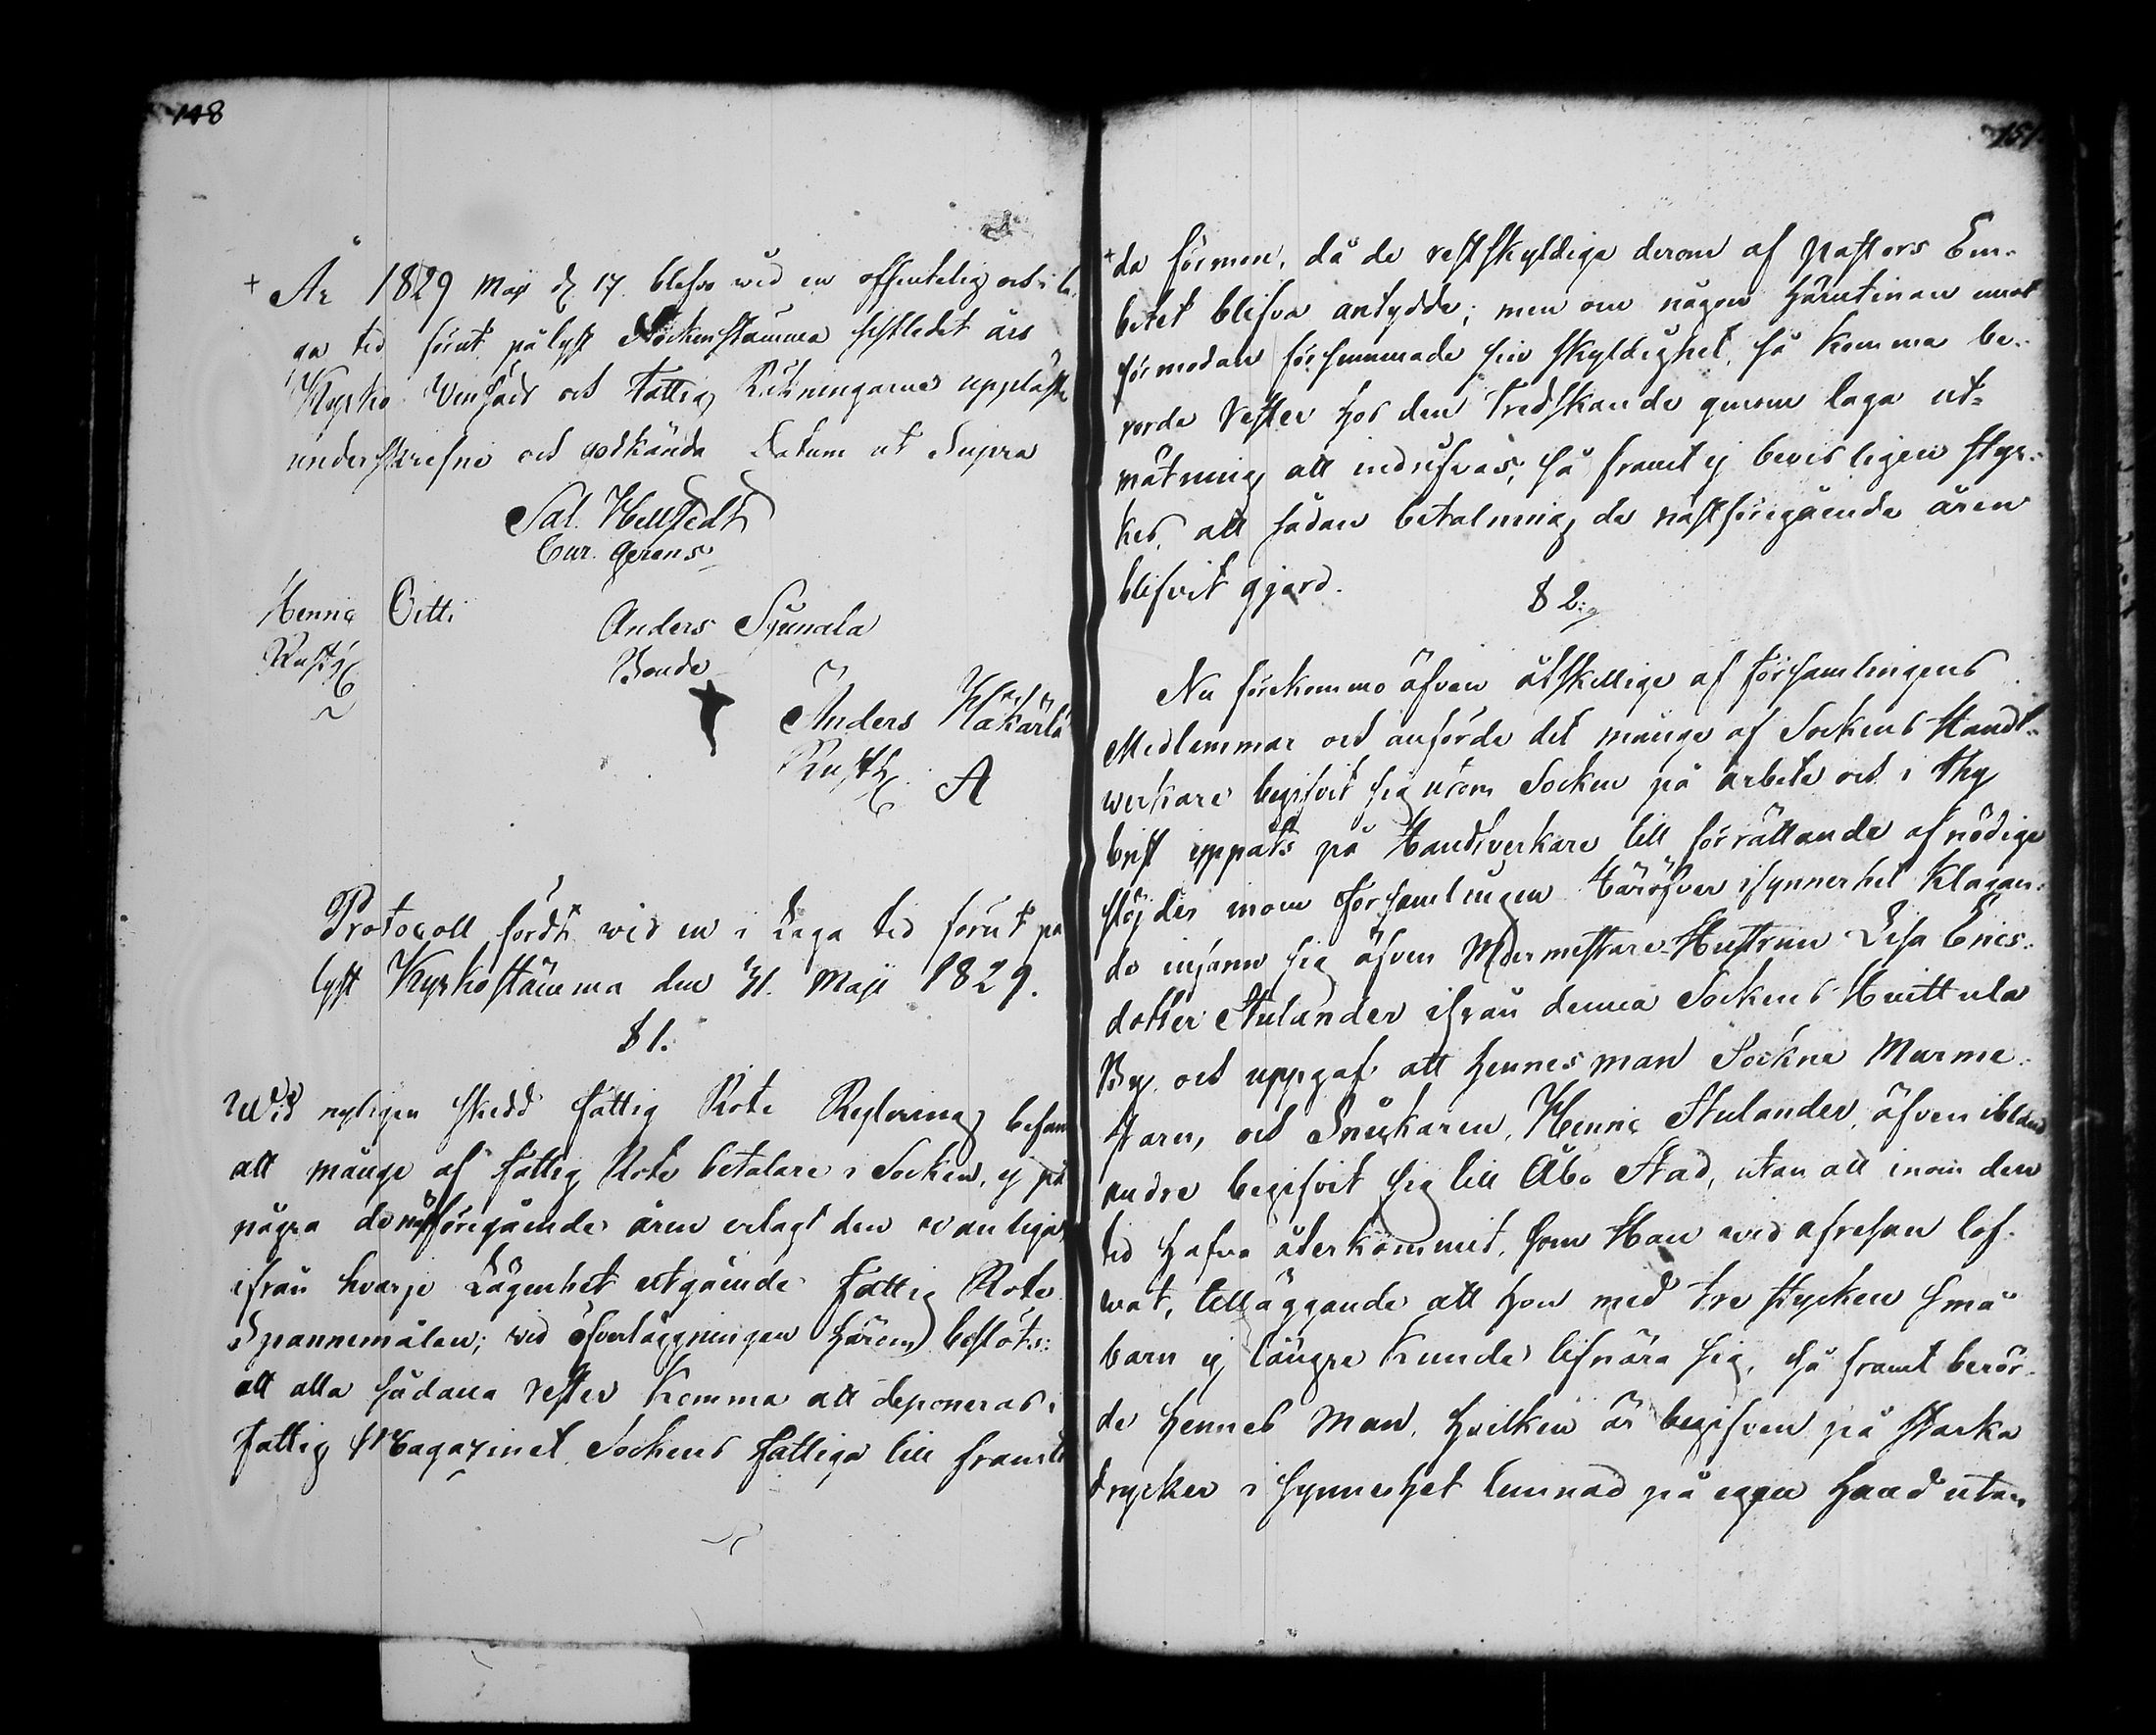 148
+ År 1829 Maji d. 17. blefvo wid en offentelig och i la-
ga tid förut pålyst Sockenstämma sistledet års
Kyrko Vinsäds och Fattig Räkningarne uppläste
underskrefne och godkända Datum ut Supra
Sal. Hellstedt
Cur. gerens
Henric Oitti
Rusth.
Anders Sjunala
Bonde
Anders Hakarla
Rusth. A
Protocoll fördt wid en i Laga tid förut på
lyst Kyrkostämma den 31. Maji 1829.
§ 1.
Wid nyligen skedd Fattig Rote Reglering befans
att månge af Fattig Rote betalare i Socken, ej på
några de nästföregående åren erlagt den wanliga,
ifrån hvarje Lägenhet utgående Fattig Rote
Spannemålen; wid öfverläggningen härom beslöts:
att alla sådana rester komma att deponeras i
Fattig Magazinet Sockens Fattiga till framti
151.
+ da förmon, då de restskyldige derom af Pastors Em-
betet blifva antydde; men om någon häruti mot
förmodan försummade sin skyldighet, så komma be-
rörde Rester hos den Tredskande genom laga ut-
mätning att indrifvas, så framt ej bevisligen styr-
kes, att sådan betalning de nästföregående åren
blifvit gjord.
§ 2.
Nu förekommo äfven åtskillige af Församlingens
Medlemmar och anförde det månge af Sockens Handt-
werkare begifvit sig utom Socken på arbete och i thy
brist uppåts på Handtverkare till förrättande af nödige
slöjder inom Församlingen Häröfver isynnerhet klagan-
de infann sig äfven Murmestare-Hustrun Lisa Erics-
dotter Stulander ifrån denna Sockens Huittula
By och uppgaf att hennes man Sockne Murme-
staren, och Snickaren, Henric Stulander, äfven ibland
andre begifvit sig till Åbo Stad, utan att inom den
tid hafva återkommit, som Han wid afresan lof-
wat, tilläggande att hon med tre stycken små
barn ej längre kunde lifnära sig, så framt berör-
de hennes Man, hvilken är begifven på starka
drycker i synnerhet lemnad på egen hand utan